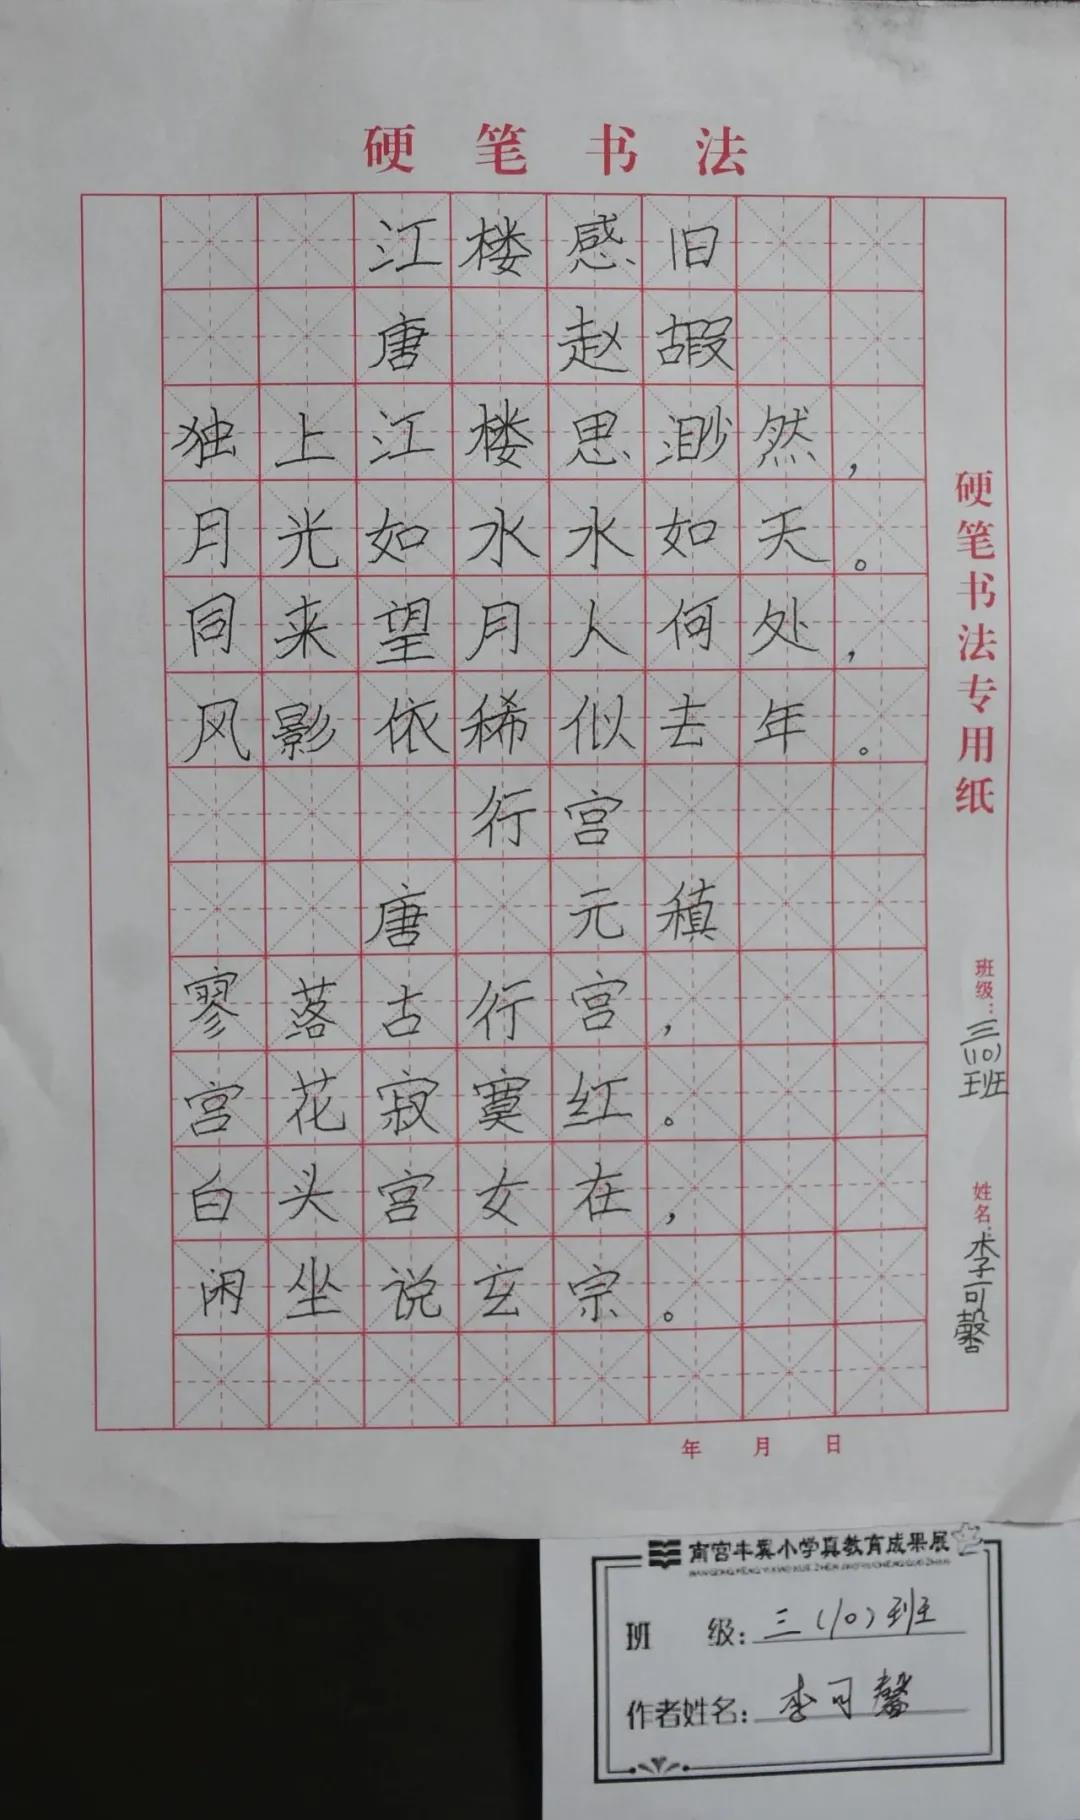 硬笔书法
江楼感旧
唐 赵嘏
独上江楼思渺然，
月光如水水如天。
同来望月人何处，
风影依稀似去年。
行宫
唐 元稹
寥落古行宫，
宫花寂寞红。
白头宫女在，
闲坐说玄宗。
年 月 日
硬笔书法专用纸
班级：三(10)班
姓名：李可馨
南宫丰翼小学真教育成果展
班 级：三(10)班
作者姓名：李可馨